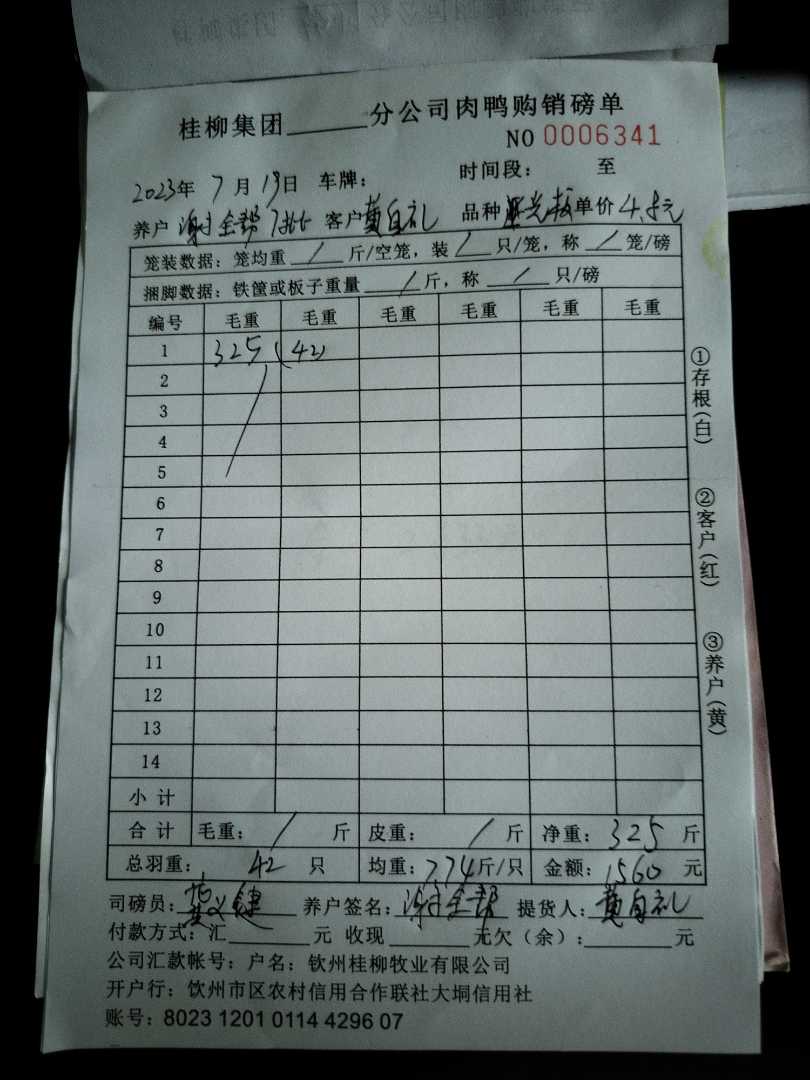 桂柳集团______分公司肉鸭购销磅单
NO 0006341
2023年 7月19日 车牌： 时间段： 至
养户 谢金帮 7批 客户 黄自礼 品种 单价 4.8元
笼装数据：笼均重 / 斤/空笼，装 / 只/笼，称 / 笼/磅
捆脚数据：铁筐或板子重量 / 斤，称 / 只/磅
编号 毛重 毛重 毛重 毛重 毛重 毛重
1 325 (42)
2
3
4
5
6
7
8
9
10
11
12
13
14
小计
合计 毛重： / 斤 皮重： / 斤 净重：325 斤
总羽重： 42 只 均重：7.74斤/只 金额：1560 元
司磅员： 养户签名：谢金帮 提货人：黄自礼
付款方式：汇______元 收现______元欠（余）：______元
公司汇款帐号：户名：钦州桂柳牧业有限公司
开户行：饮州市区农村信用合作联社大垌信用社
账号：8023 1201 0114 4296 07
①存根(白)
②客户(红)
③养户(黄)